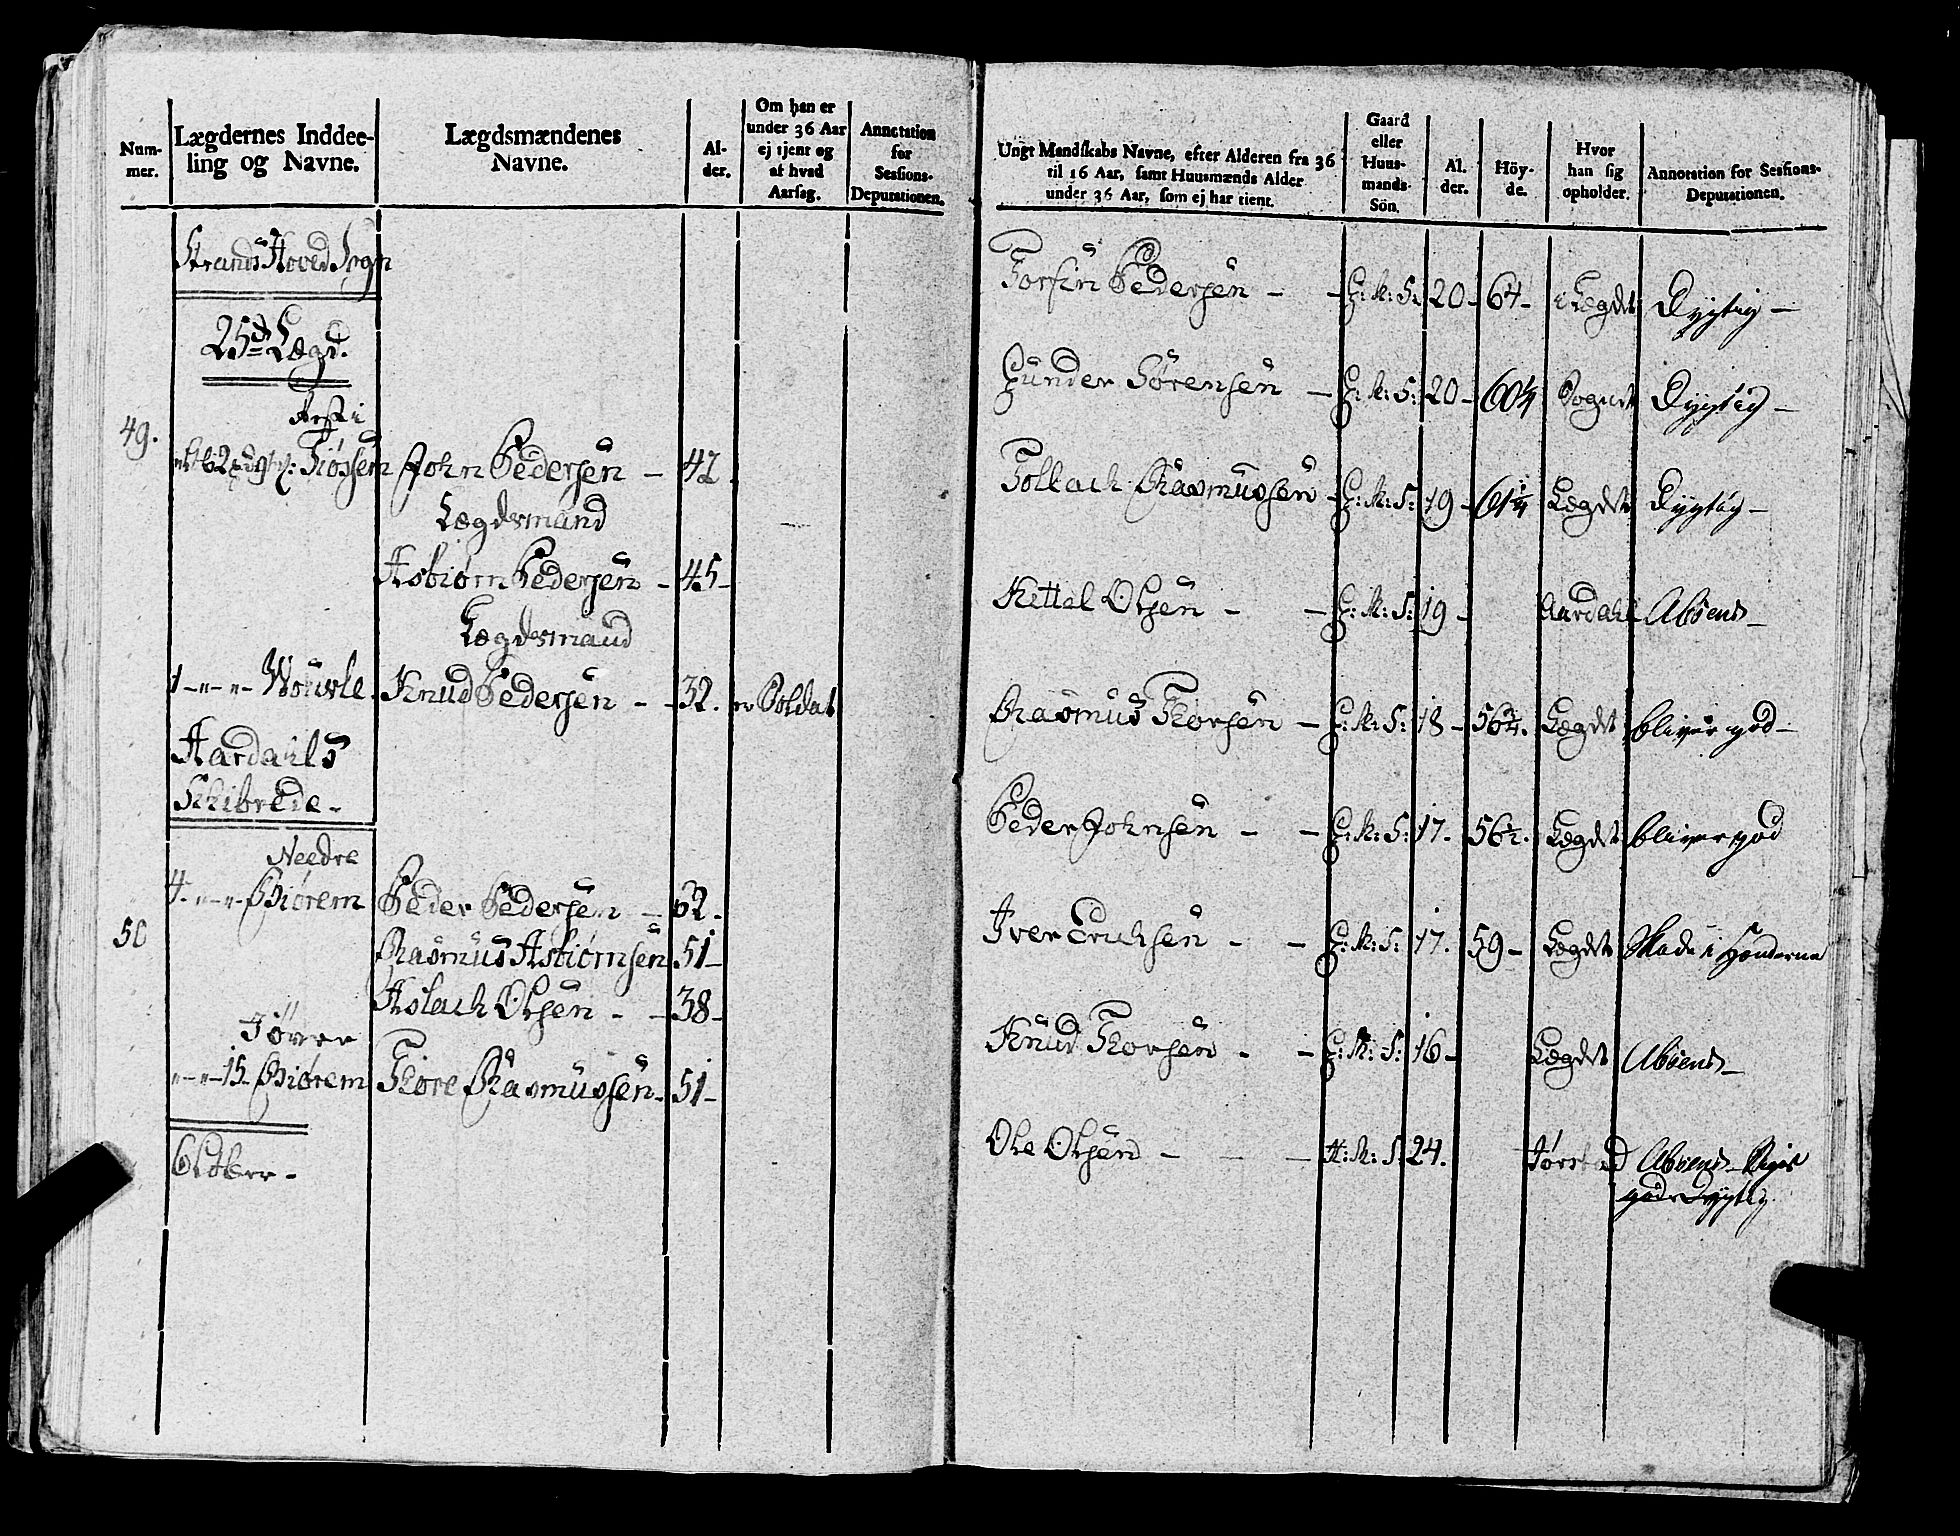 Num-
mer.
Lægdernes Inddee-
ling og Navne.
Lægdsmændenes
Navne.
Al-
der.
Om han er
under 36 Aar
ej tjent og
af hvad
Aarsag.
Annotation
for
Sessions-
Deputationen.
Strands Hoved Sogn
25de Lægd.
49.
Tiøssem John Pedersen - 42
Lægdsmand
Asbiørn Pedersen - 45-
Lægdsmand
1 - " - " - Wourle Knud Pedersen - - 32. er Soldat
Aardahls
Schibrede -
Needre
4 - " - " - Biørem Peder Pedersen - 62.
50 Rasmus Asbiørnsen 51-
Aslach Olsen - - 38-
" - " - 15 - Biørem Thore Rasmussen - 51-
Ungt Mandskabs Navne, efter Alderen fra 36
til 16 Aar, samt Huusmænds Alder
under 36 Aar, som ej har tient.
Gaard
eller
Huus-
mands-
Sön.
Al-
der.
Höy-
de.
Hvor
han sig
opholder.
Annotation for Sessions-
Deputationen.
Torfin Pedersen - - G: M: S: 20- 64- i Lægdet Dygtig -
Gunder Sørensen - G: M: S: 20- 60¼ Sognet Dygtig -
Tollach Rasmussen - G: M: S: 19- 61¼ Lægdet Dygtig -
Kettel Olsen - - G: M: S: 19- Aardahl Absent -
Rasmus Thorsen - G: M: S: 18- 56¼. Lægdet bliver god -
Peder Johnsen - - G: M: S: 17. 56½. Lægdet bliver god
Iver Erichsen - - G: M: S: 17. 59- Lægdet Skade i Hænderne
Knud Thorsen - - G: M: S: 16- Lægdet Absent -
Ole Olsen - - - H: M: S: 24. Absent -